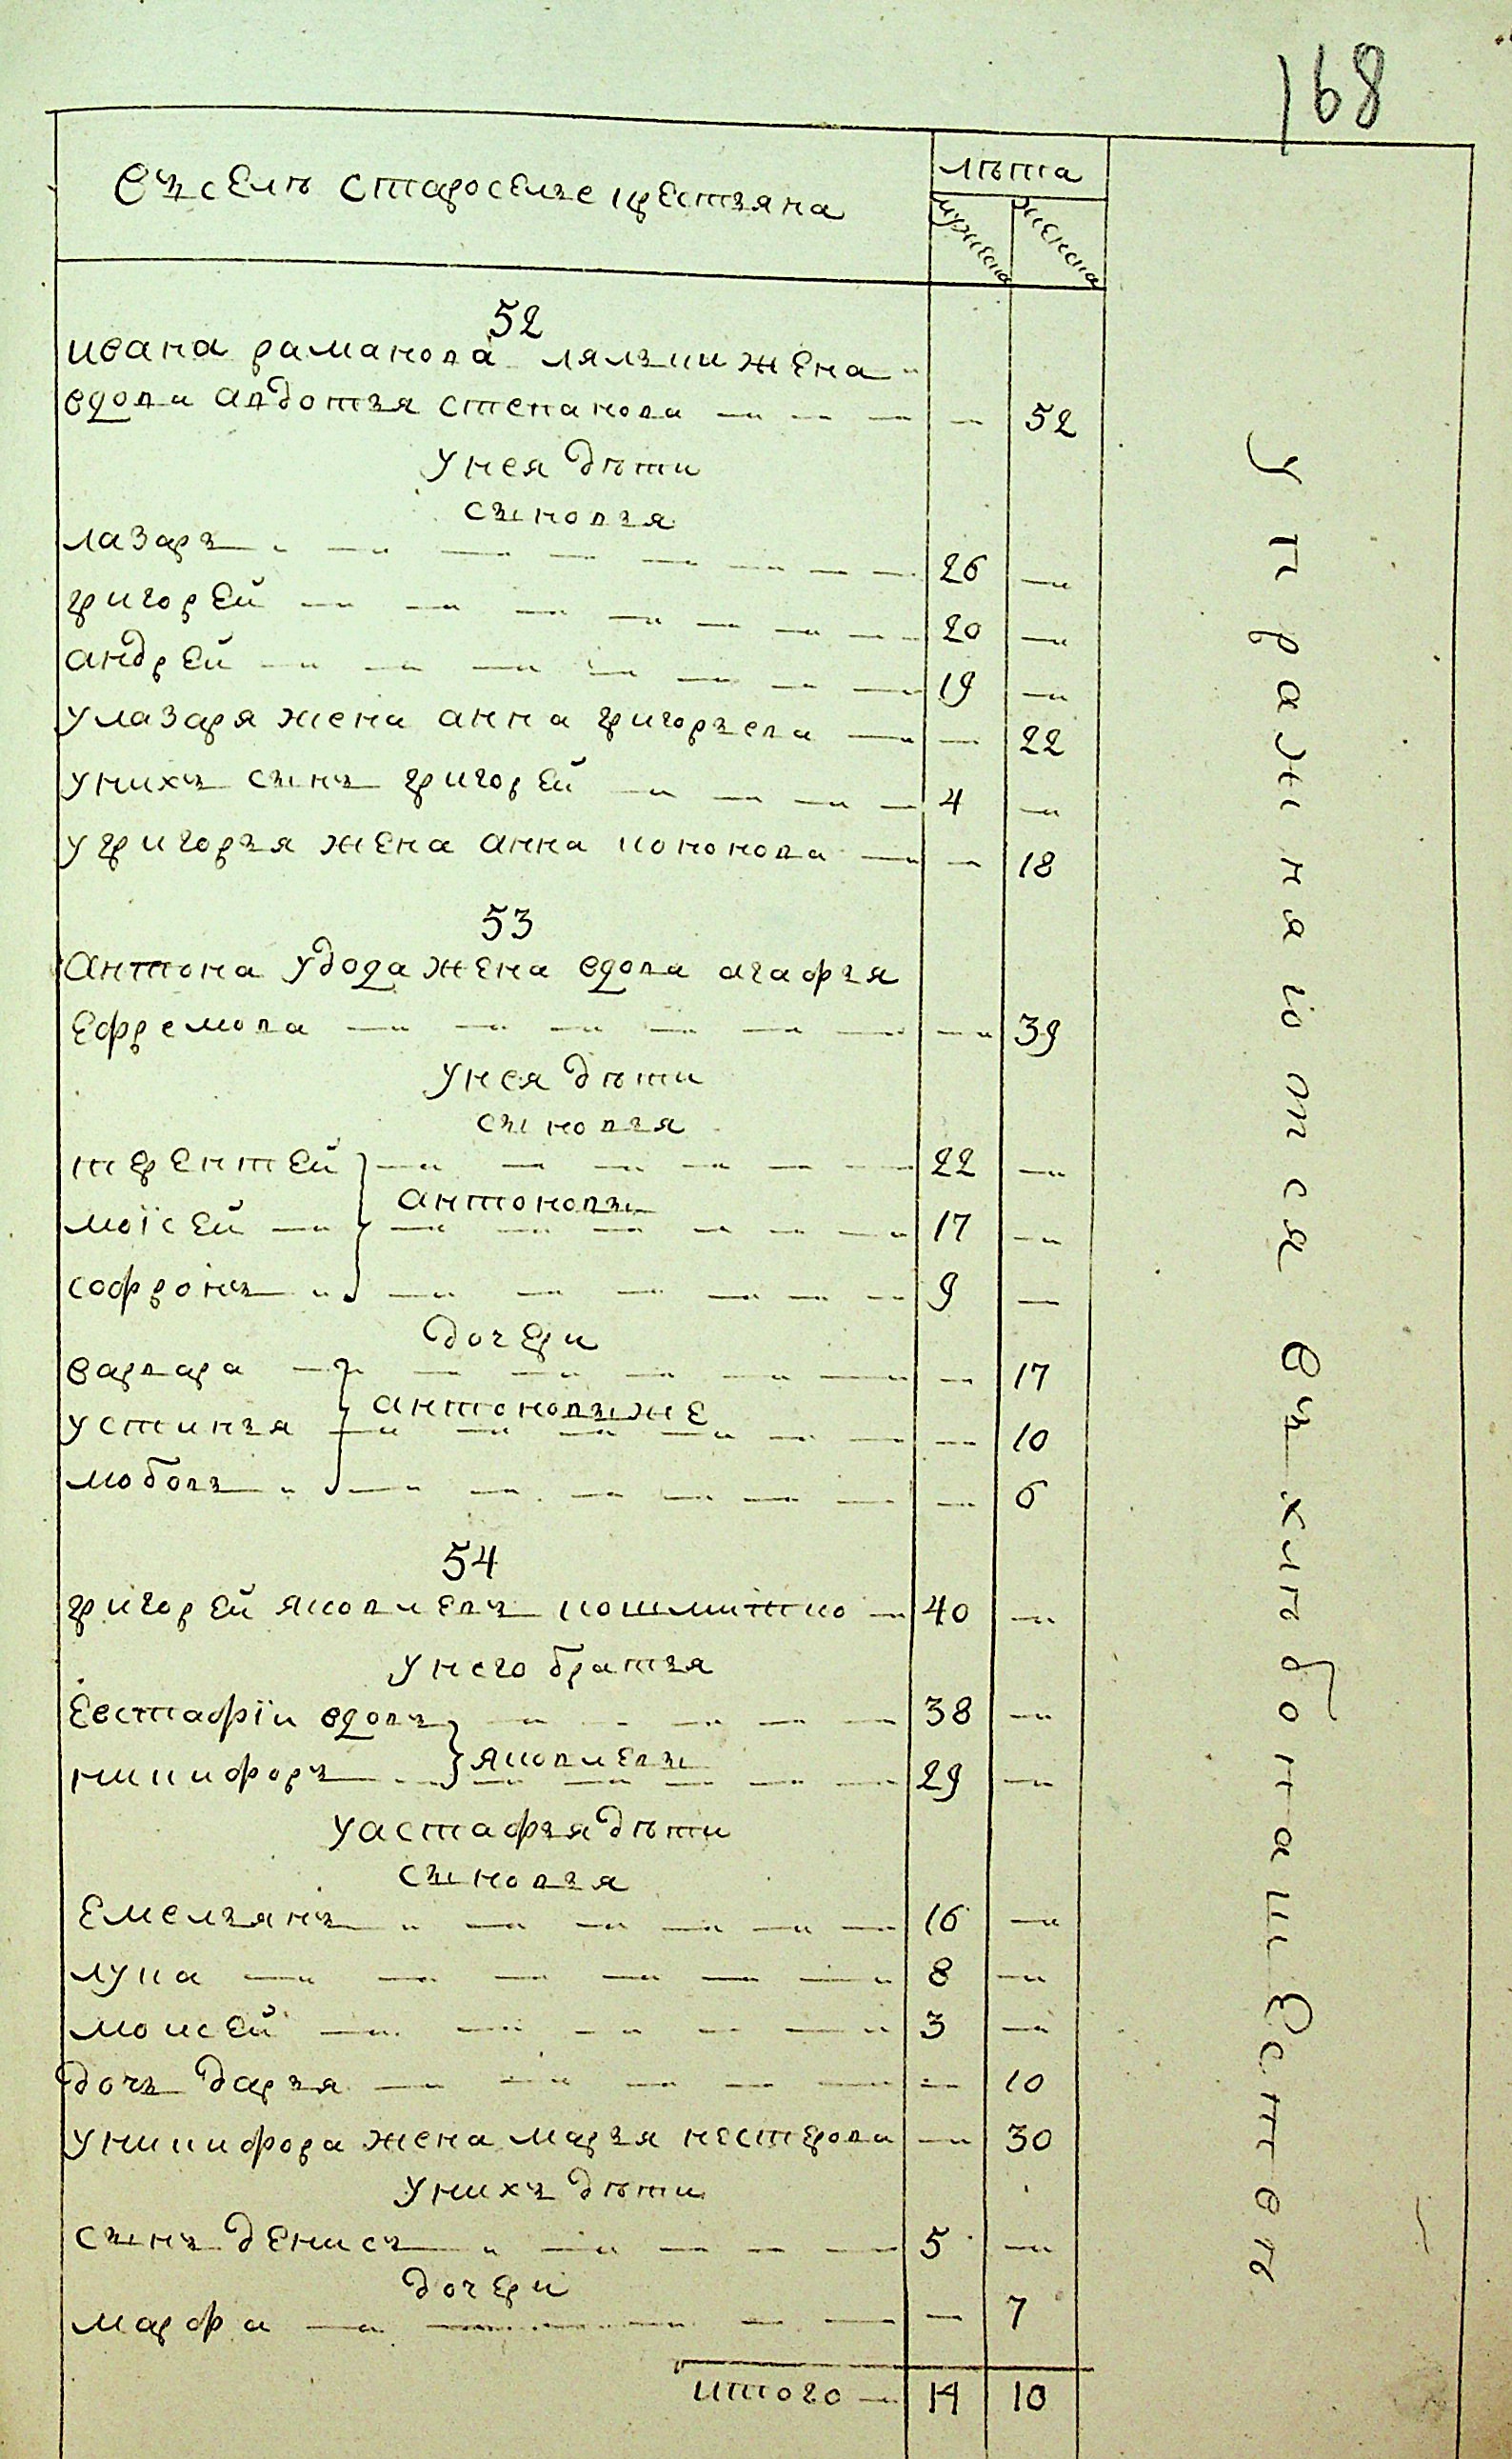 168
Въ селѣ староселье крестьяна
лѣта
мужеска
женска
52
ивана раманова ляльки жена
вдова авдотья степанова — — — — 52
у нея дѣти
сыновья
лазарь — — — — — — — 26 —
григорей — — — — — — — 20 —
андрей — — — — — — — 19 —
у лазаря жена анна григорьева — — 22
у нихъ сынъ григорей — — — — 4 —
у григорья жена анна кононова — — 18
53
антона удода жена вдова агафья
ефремова — — — — — — — 39
у нея дѣти
сыновья
терентей — — — — — — 22 —
антоновы
моїсей — — — — — — — 17 —
софронъ — — — — — — 9 —
дочери
варвара — — — — — — — 17
антоновы же
устинья — — — — — — — 10
любовь — — — — — — — 6
54
григорей яковлевъ кошмитко — 40 —
у него братья
Евстафїи вдовъ — — — — — 38 —
яковлевы
никифоръ — — — — — — 29 —
у астафья дѣти
сыновья
Емельянъ — — — — — — 16 —
лука — — — — — — — 8 —
моисей — — — — — — 3 —
дочь дарья — — — — — — 10
у никифора жена марья нестерова — 30
у нихъ дѣти
сынъ денисъ — — — — — 5 —
дочери
марфа — — — — — 7
итого — 14 10
упражнаютса въ хлибопашествѣ